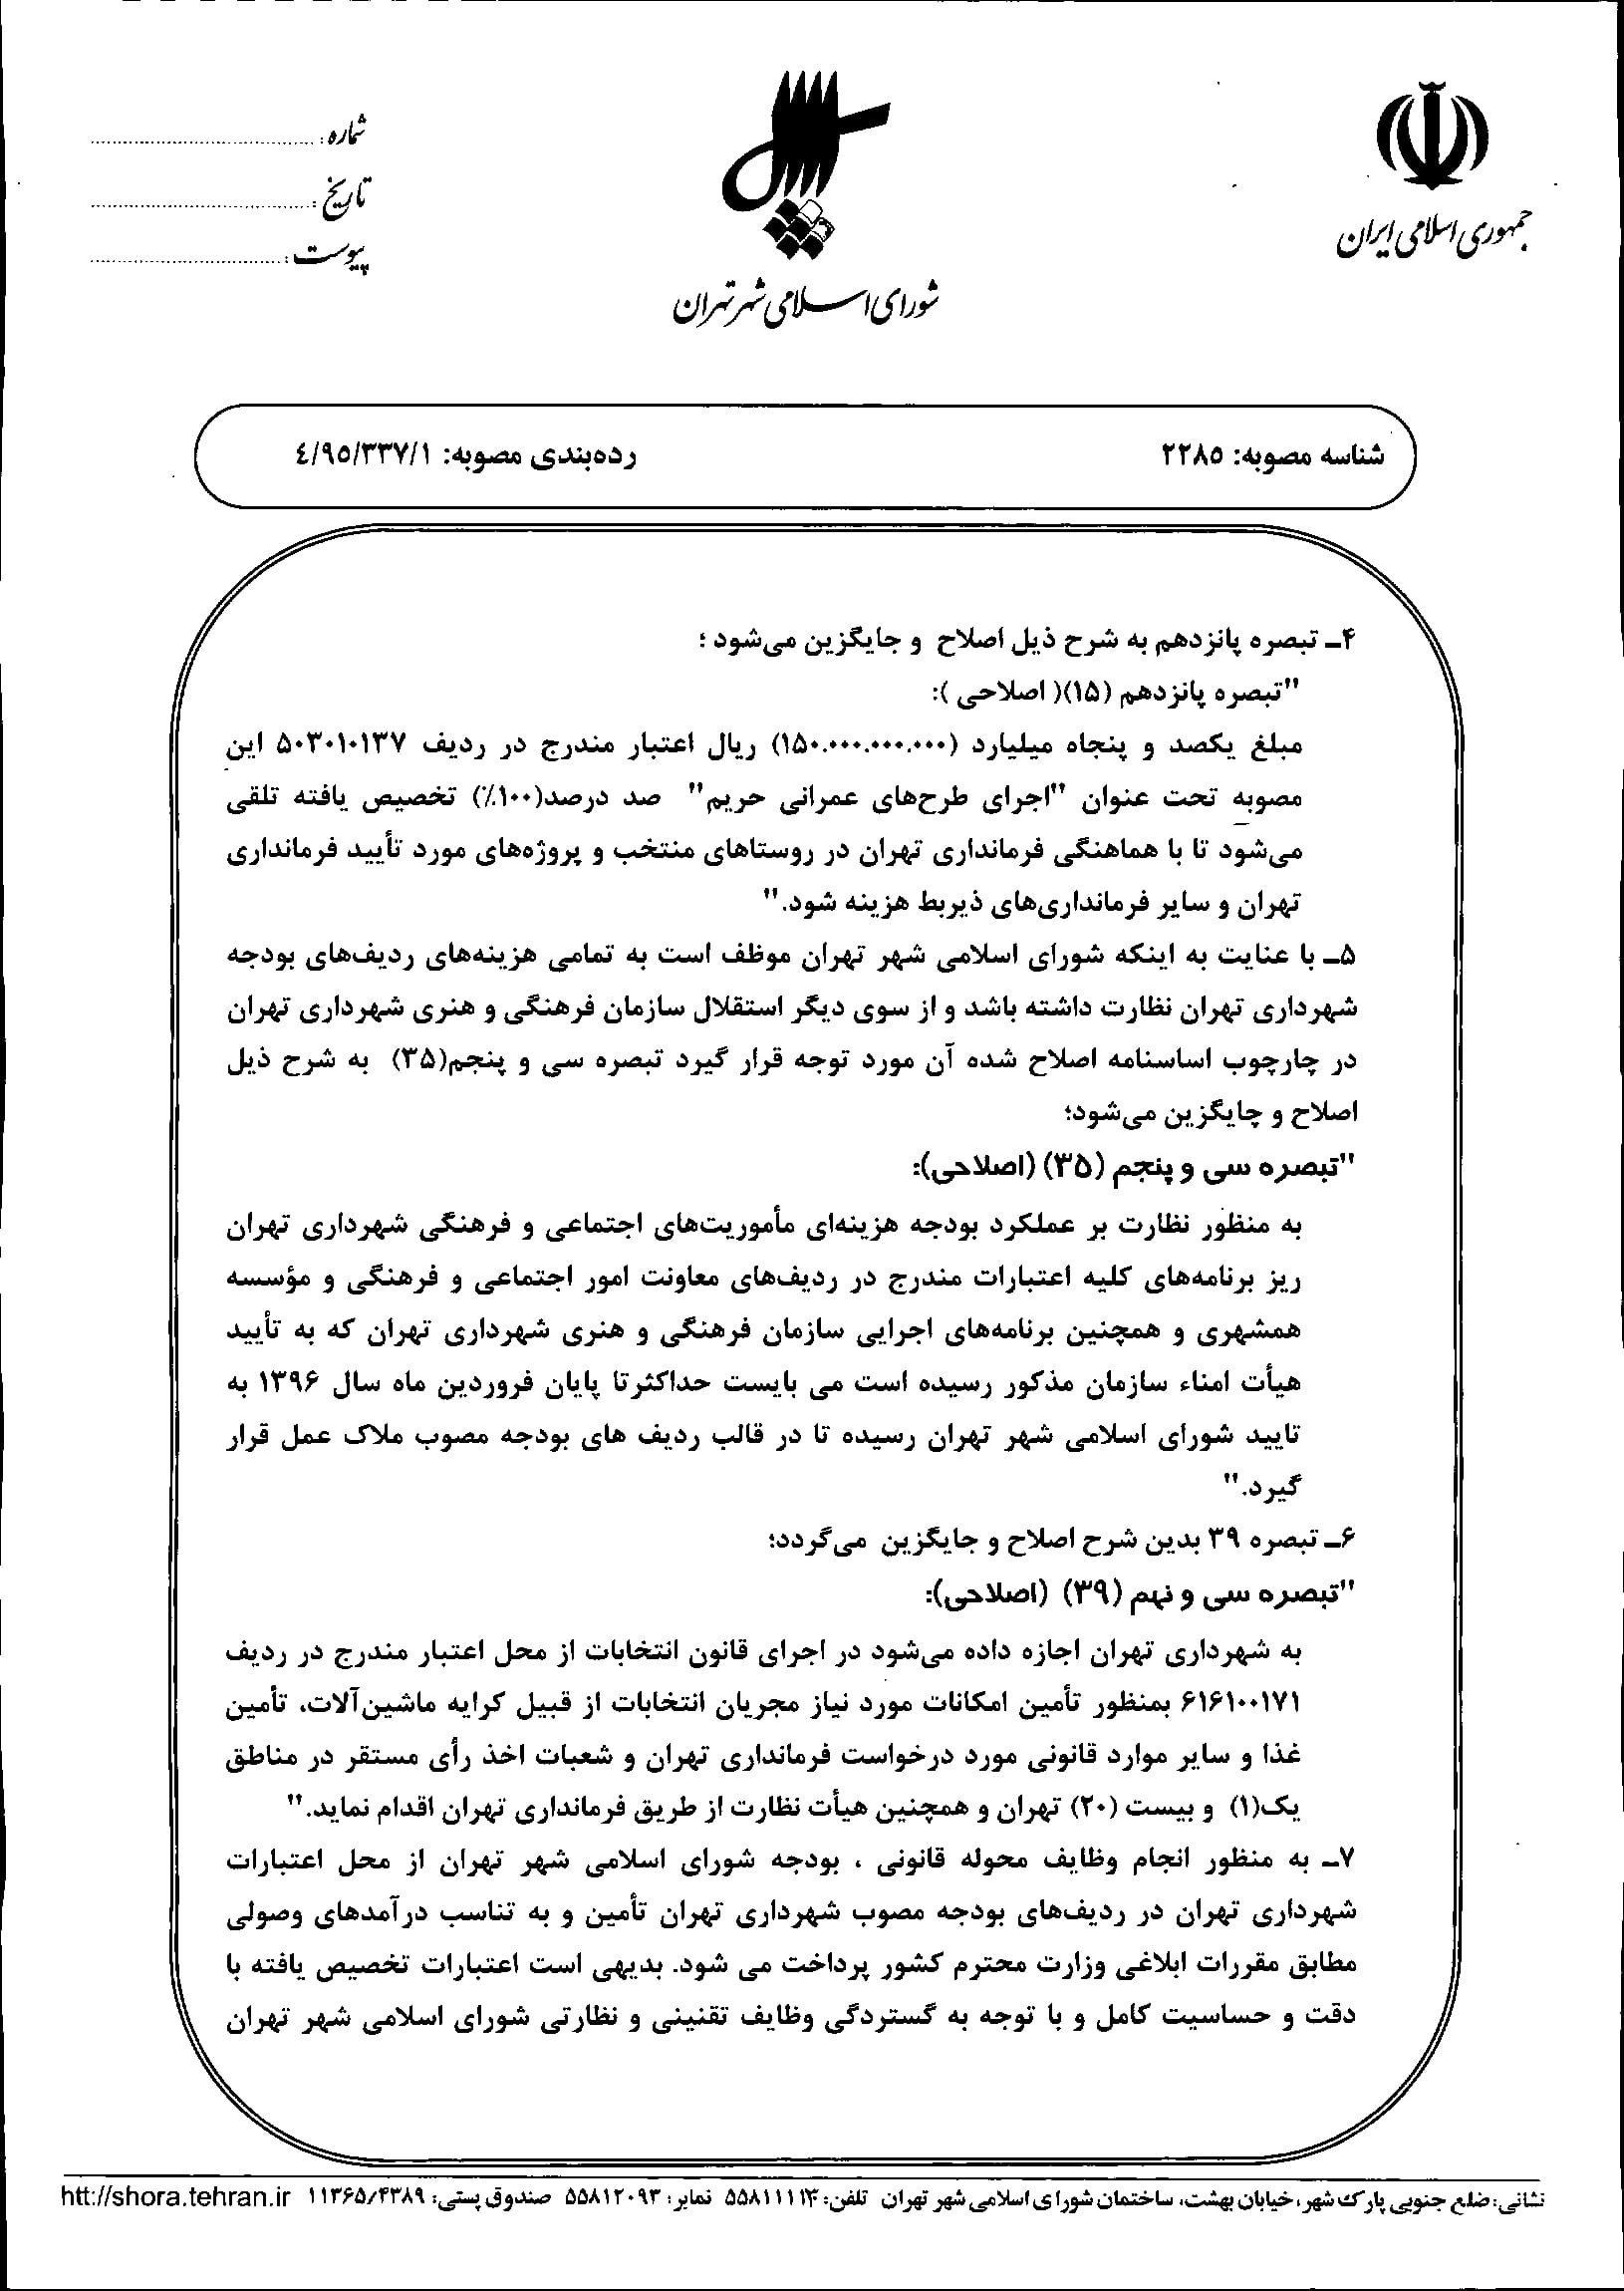 جمهوری اسلامی ایران
شورای اسلامی شهر تهران
شماره:
تاریخ:
پیوست:
شناسه مصوبه: ۲۲۸۵
رده‌بندی مصوبه: ٤/۹٥/۳۳۷/۱
۴ـ تبصره پانزدهم به شرح ذیل اصلاح و جایگزین می‌شود ؛
"تبصره پانزدهم (۱۵)( اصلاحی ):
مبلغ یکصد و پنجاه میلیارد (۱۵۰.۰۰۰.۰۰۰.۰۰۰) ریال اعتبار مندرج در ردیف ۵۰۳۰۱۰۱۳۷ این
مصوبه تحت عنوان "اجرای طرح‌های عمرانی حریم" صد درصد(۱۰۰٪) تخصیص یافته تلقی
می‌شود تا با هماهنگی فرمانداری تهران در روستاهای منتخب و پروژه‌های مورد تأیید فرمانداری
تهران و سایر فرمانداری‌های ذیربط هزینه شود."
۵ـ با عنایت به اینکه شورای اسلامی شهر تهران موظف است به تمامی هزینه‌های ردیف‌های بودجه
شهرداری تهران نظارت داشته باشد و از سوی دیگر استقلال سازمان فرهنگی و هنری شهرداری تهران
در چارچوب اساسنامه اصلاح شده آن مورد توجه قرار گیرد تبصره سی و پنجم(۳۵) به شرح ذیل
اصلاح و جایگزین می‌شود؛
"تبصره سی و پنجم (۳۵) (اصلاحی):
به منظور نظارت بر عملکرد بودجه هزینه‌ای مأموریت‌های اجتماعی و فرهنگی شهرداری تهران
ریز برنامه‌های کلیه اعتبارات مندرج در ردیف‌های معاونت امور اجتماعی و فرهنگی و مؤسسه
همشهری و همچنین برنامه‌های اجرایی سازمان فرهنگی و هنری شهرداری تهران که به تأیید
هیأت امناء سازمان مذکور رسیده است می بایست حداکثرتا پایان فروردین ماه سال ۱۳۹۶ به
تایید شورای اسلامی شهر تهران رسیده تا در قالب ردیف های بودجه مصوب ملاک عمل قرار
گیرد."
۶ـ تبصره ۳۹ بدین شرح اصلاح و جایگزین می‌گردد؛
"تبصره سی و نهم (۳۹) (اصلاحی):
به شهرداری تهران اجازه داده می‌شود در اجرای قانون انتخابات از محل اعتبار مندرج در ردیف
۶۱۶۱۰۰۱۷۱ بمنظور تأمین امکانات مورد نیاز مجریان انتخابات از قبیل کرایه ماشین‌آلات، تأمین
غذا و سایر موارد قانونی مورد درخواست فرمانداری تهران و شعبات اخذ رأی مستقر در مناطق
یک(۱) و بیست (۲۰) تهران و همچنین هیأت نظارت از طریق فرمانداری تهران اقدام نماید."
۷ـ به منظور انجام وظایف محوله قانونی ، بودجه شورای اسلامی شهر تهران از محل اعتبارات
شهرداری تهران در ردیف‌های بودجه مصوب شهرداری تهران تأمین و به تناسب درآمدهای وصولی
مطابق مقررات ابلاغی وزارت محترم کشور پرداخت می شود. بدیهی است اعتبارات تخصیص یافته با
دقت و حساسیت کامل و با توجه به گستردگی وظایف تقنینی و نظارتی شورای اسلامی شهر تهران
نشانی: ضلع جنوبی پارک شهر، خیابان بهشت، ساختمان شورای اسلامی شهر تهران تلفن: ۵۵۸۱۱۱۱۳ نمابر: ۵۵۸۱۲۰۹۳ صندوق پستی: ۱۱۳۶۵/۴۳۸۹ htt://shora.tehran.ir